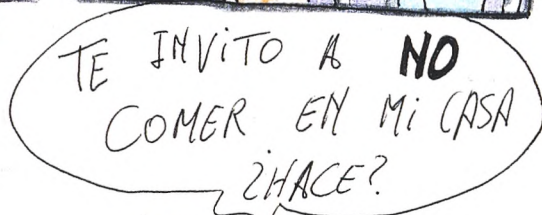 TE INVITO A NO
COMER EN MI CASA
¿HACE?